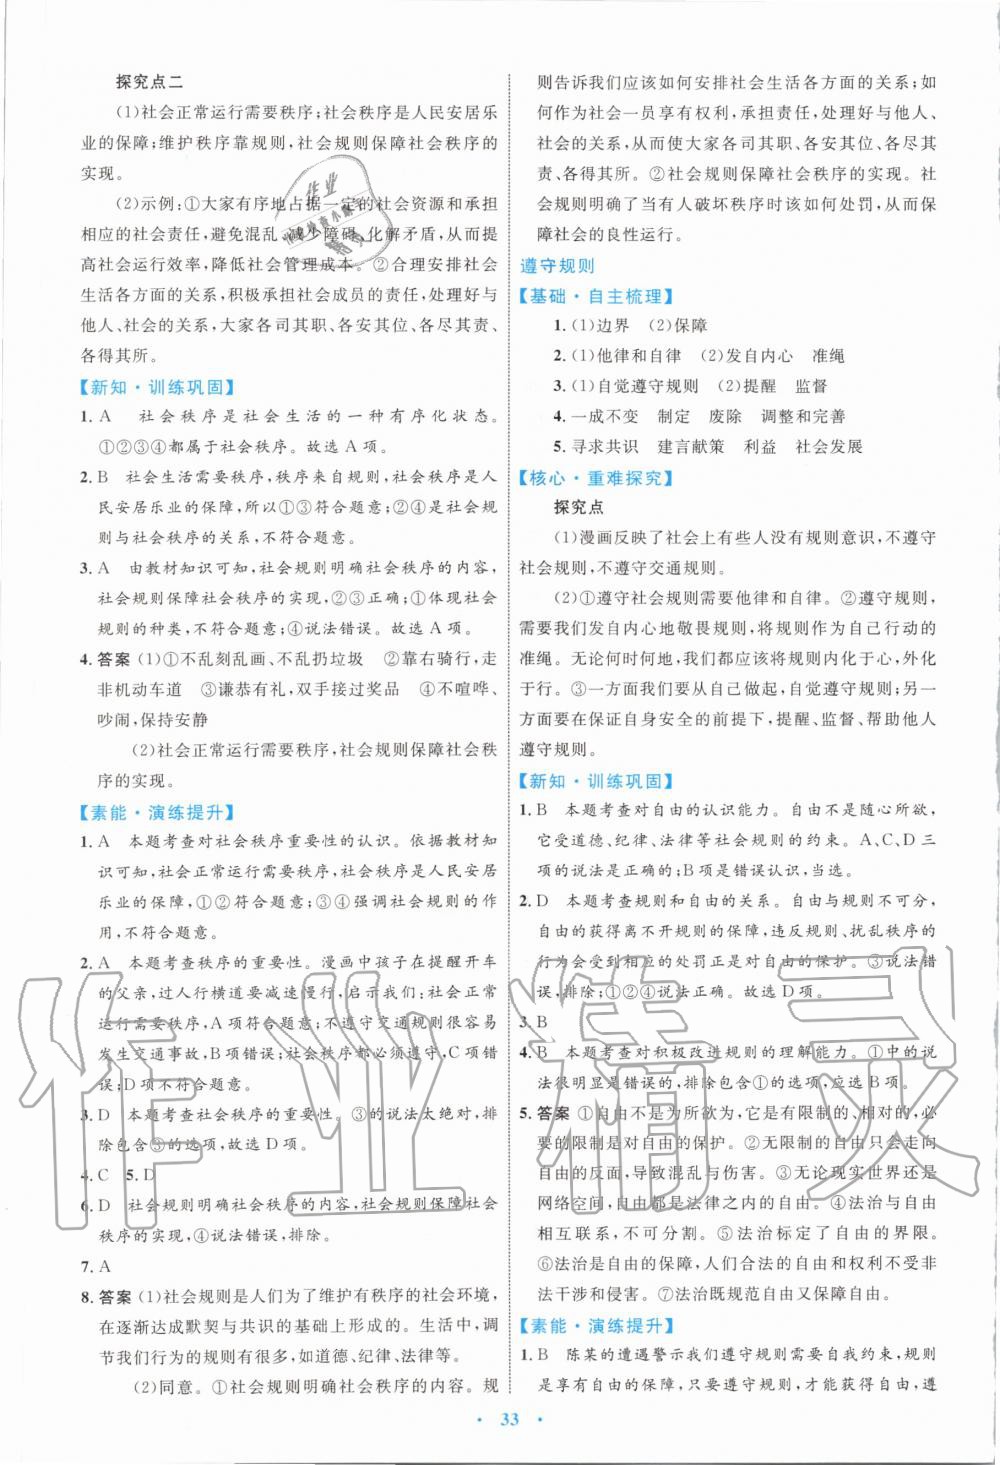 探究点二
(1)社会正常运行需要秩序;社会秩序是人民安居乐
业的保障;维护秩序靠规则,社会规则保障社会秩序的
实现。
(2)示例:①大家有序地占据一定的社会资源和承担
相应的社会责任,避免混乱,减少障碍,化解矛盾,从而提
高社会运行效率,降低社会管理成本。②合理安排社会
生活各方面的关系,积极承担社会成员的责任,处理好与
他人、社会的关系,大家各司其职、各安其位、各尽其责、
各得其所。
【新知·训练巩固】
1. A 社会秩序是社会生活的一种有序化状态。
①②③④都属于社会秩序。故选A项。
2. B 社会生活需要秩序,秩序来自规则,社会秩序是人
民安居乐业的保障,所以①③符合题意;②④是社会规
则与社会秩序的关系,不符合题意。
3. A 由教材知识可知,社会规则明确社会秩序的内容,
社会规则保障社会秩序的实现,②③正确;①体现社会
规则的种类,不符合题意;④说法错误。故选A项。
4. 答案 (1)①不乱刻乱画、不乱扔垃圾 ②靠右骑行,走
非机动车道 ③谦恭有礼,双手接过奖品 ④不喧哗、
吵闹,保持安静
(2)社会正常运行需要秩序,社会规则保障社会秩
序的实现。
【素能·演练提升】
1. A 本题考查对社会秩序重要性的认识。依据教材知
识可知,社会正常运行需要秩序,社会秩序是人民安居
乐业的保障,①②符合题意;③④强调社会规则的作
用,不符合题意。
2. A 本题考查秩序的重要性。漫画中孩子在提醒开车
的父亲,过人行横道要减速慢行,启示我们:社会正常
运行需要秩序,A项符合题意;不遵守交通规则很容易
发生交通事故,B项错误;社会秩序都必须遵守,C项错
误;D项不符合题意。
3. D 本题考查社会秩序的重要性。③的说法太绝对,排
除包含③的选项,故选D项。
4. C 5. D
6. D 社会规则明确社会秩序的内容,社会规则保障社会
秩序的实现,④说法错误,排除。
7. A
8. 答案 (1)社会规则是人们为了维护有秩序的社会环境,
在逐渐达成默契与共识的基础上形成的。生活中,调
节我们行为的规则有很多,如道德、纪律、法律等。
(2)同意。①社会规则明确社会秩序的内容。规
则告诉我们应该如何安排社会生活各方面的关系;如
何作为社会一员享有权利,承担责任,处理好与他人、
社会的关系,从而使大家各司其职、各安其位、各尽其
责、各得其所。②社会规则保障社会秩序的实现。社
会规则明确了当有人破坏秩序时该如何处罚,从而保
障社会的良性运行。
遵守规则
【基础·自主梳理】
1. (1)边界 (2)保障
2. (1)他律和自律 (2)发自内心 准绳
3. (1)自觉遵守规则 (2)提醒 监督
4. 一成不变 制定 废除 调整和完善
5. 寻求共识 建言献策 利益 社会发展
【核心·重难探究】
探究点
(1)漫画反映了社会上有些人没有规则意识,不遵守
社会规则,不遵守交通规则。
(2)①遵守社会规则需要他律和自律。②遵守规则,
需要我们发自内心地敬畏规则,将规则作为自己行动的
准绳。无论何时何地,我们都应该将规则内化于心,外化
于行。③一方面我们要从自己做起,自觉遵守规则;另一
方面要在保证自身安全的前提下,提醒、监督、帮助他人
遵守规则。
【新知·训练巩固】
1. B 本题考查对自由的认识能力。自由不是随心所欲,
它受道德、纪律、法律等社会规则的约束。A、C、D三
项的说法是正确的;B项是错误认识,当选。
2. D 本题考查规则和自由的关系。自由与规则不可分,
自由的获得离不开规则的保障,违反规则、扰乱秩序的
行为会受到相应的处罚正是对自由的保护。③说法错
误,排除;①②④说法正确。故选D项。
3. B
4. B 本题考查对积极改进规则的理解能力。①中的说
法很明显是错误的,排除包含①的选项,应选B项。
5. 答案 ①自由不是为所欲为,它是有限制的、相对的,必
要的限制是对自由的保护。②无限制的自由只会走向
自由的反面,导致混乱与伤害。③无论现实世界还是
网络空间,自由都是法律之内的自由。④法治与自由
相互联系,不可分割。⑤法治标定了自由的界限。
⑥法治是自由的保障,人们合法的自由和权利不受非
法干涉和侵害。⑦法治既规范自由又保障自由。
【素能·演练提升】
1. B 陈某的遭遇警示我们遵守规则需要自我约束,规则
是享有自由的保障,只要遵守规则,才能获得自由,遵
· 33 ·
作业精灵